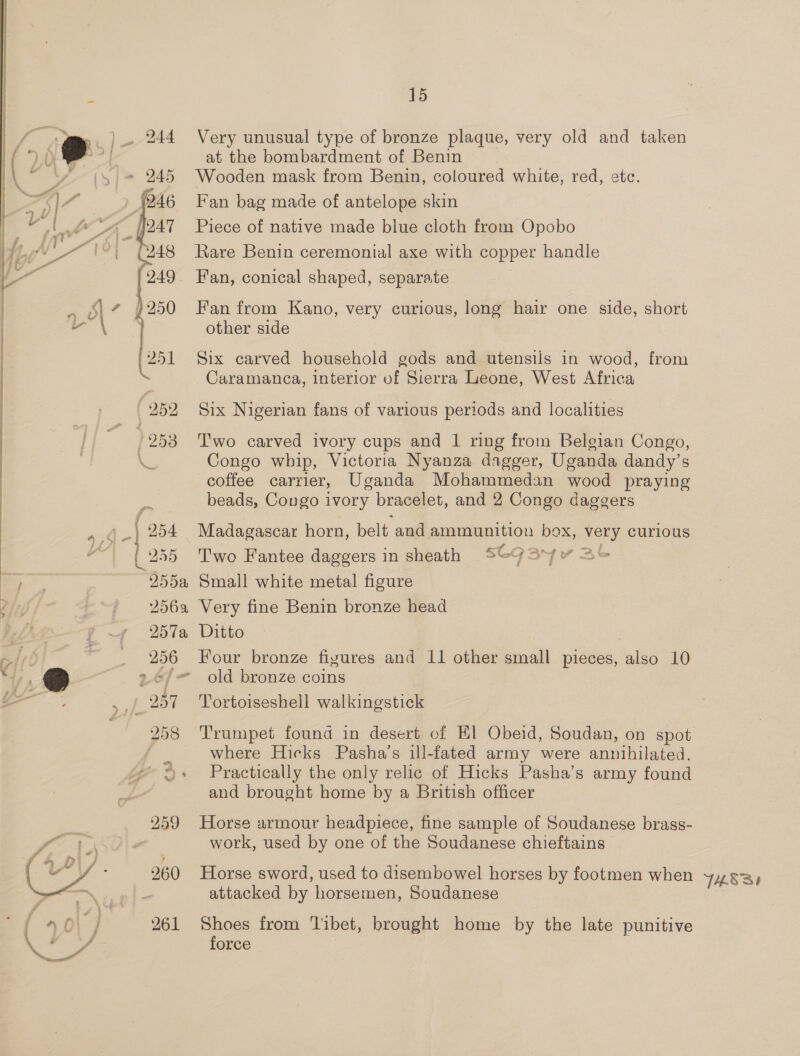 15
244 Very unusual type of bronze plaque, very old and taken
at the bombardment of Benin
245 Wooden mask from Benin, coloured white, red, etc.
246 Fan bag made of antelope skin
247 Piece of native made blue cloth from Opobo
248 Rare Benin ceremonial axe with copper handle
249 Fan, conical shaped, separate
250 Fan from Kano, very curious, long hair one side, short
other side
251 Six carved household gods and utensils in wood, from
Caramanca, interior of Sierra Leone, West Africa
252 Six Nigerian fans of various periods and localities
253 Two carved ivory cups and 1 ring from Belgian Congo,
Congo whip, Victoria Nyanza dagger, Uganda dandy's
coffee carrier, Uganda Mohammedan wood praying
beads, Congo ivory bracelet, and 2 Congo daggers
254 Madagascar horn, belt and ammunition box, very curious
255 Two Fantee daggers in sheath
255a Small white metal figure
256a Very fine Benin bronze head
257a Ditto
256 Four bronze figures and 11 other small pieces, also 10
old bronze coins
257 Tortoiseshell walkingstick
258 Trumpet found in desert of El Obeid, Soudan, on spot
where Hicks Pasha's ill-fated army were annihilated.
Practically the only relic of Hicks Pasha's army found
and brought home by a British officer
259 Horse armour headpiece, fine sample of Soudanese brass-
work, used by one of the Soudanese chieftains
260 Horse sword, used to disembowel horses by footmen when
attacked by horsemen, Soudanese
261 Shoes from Tibet, brought home by the late punitive
force